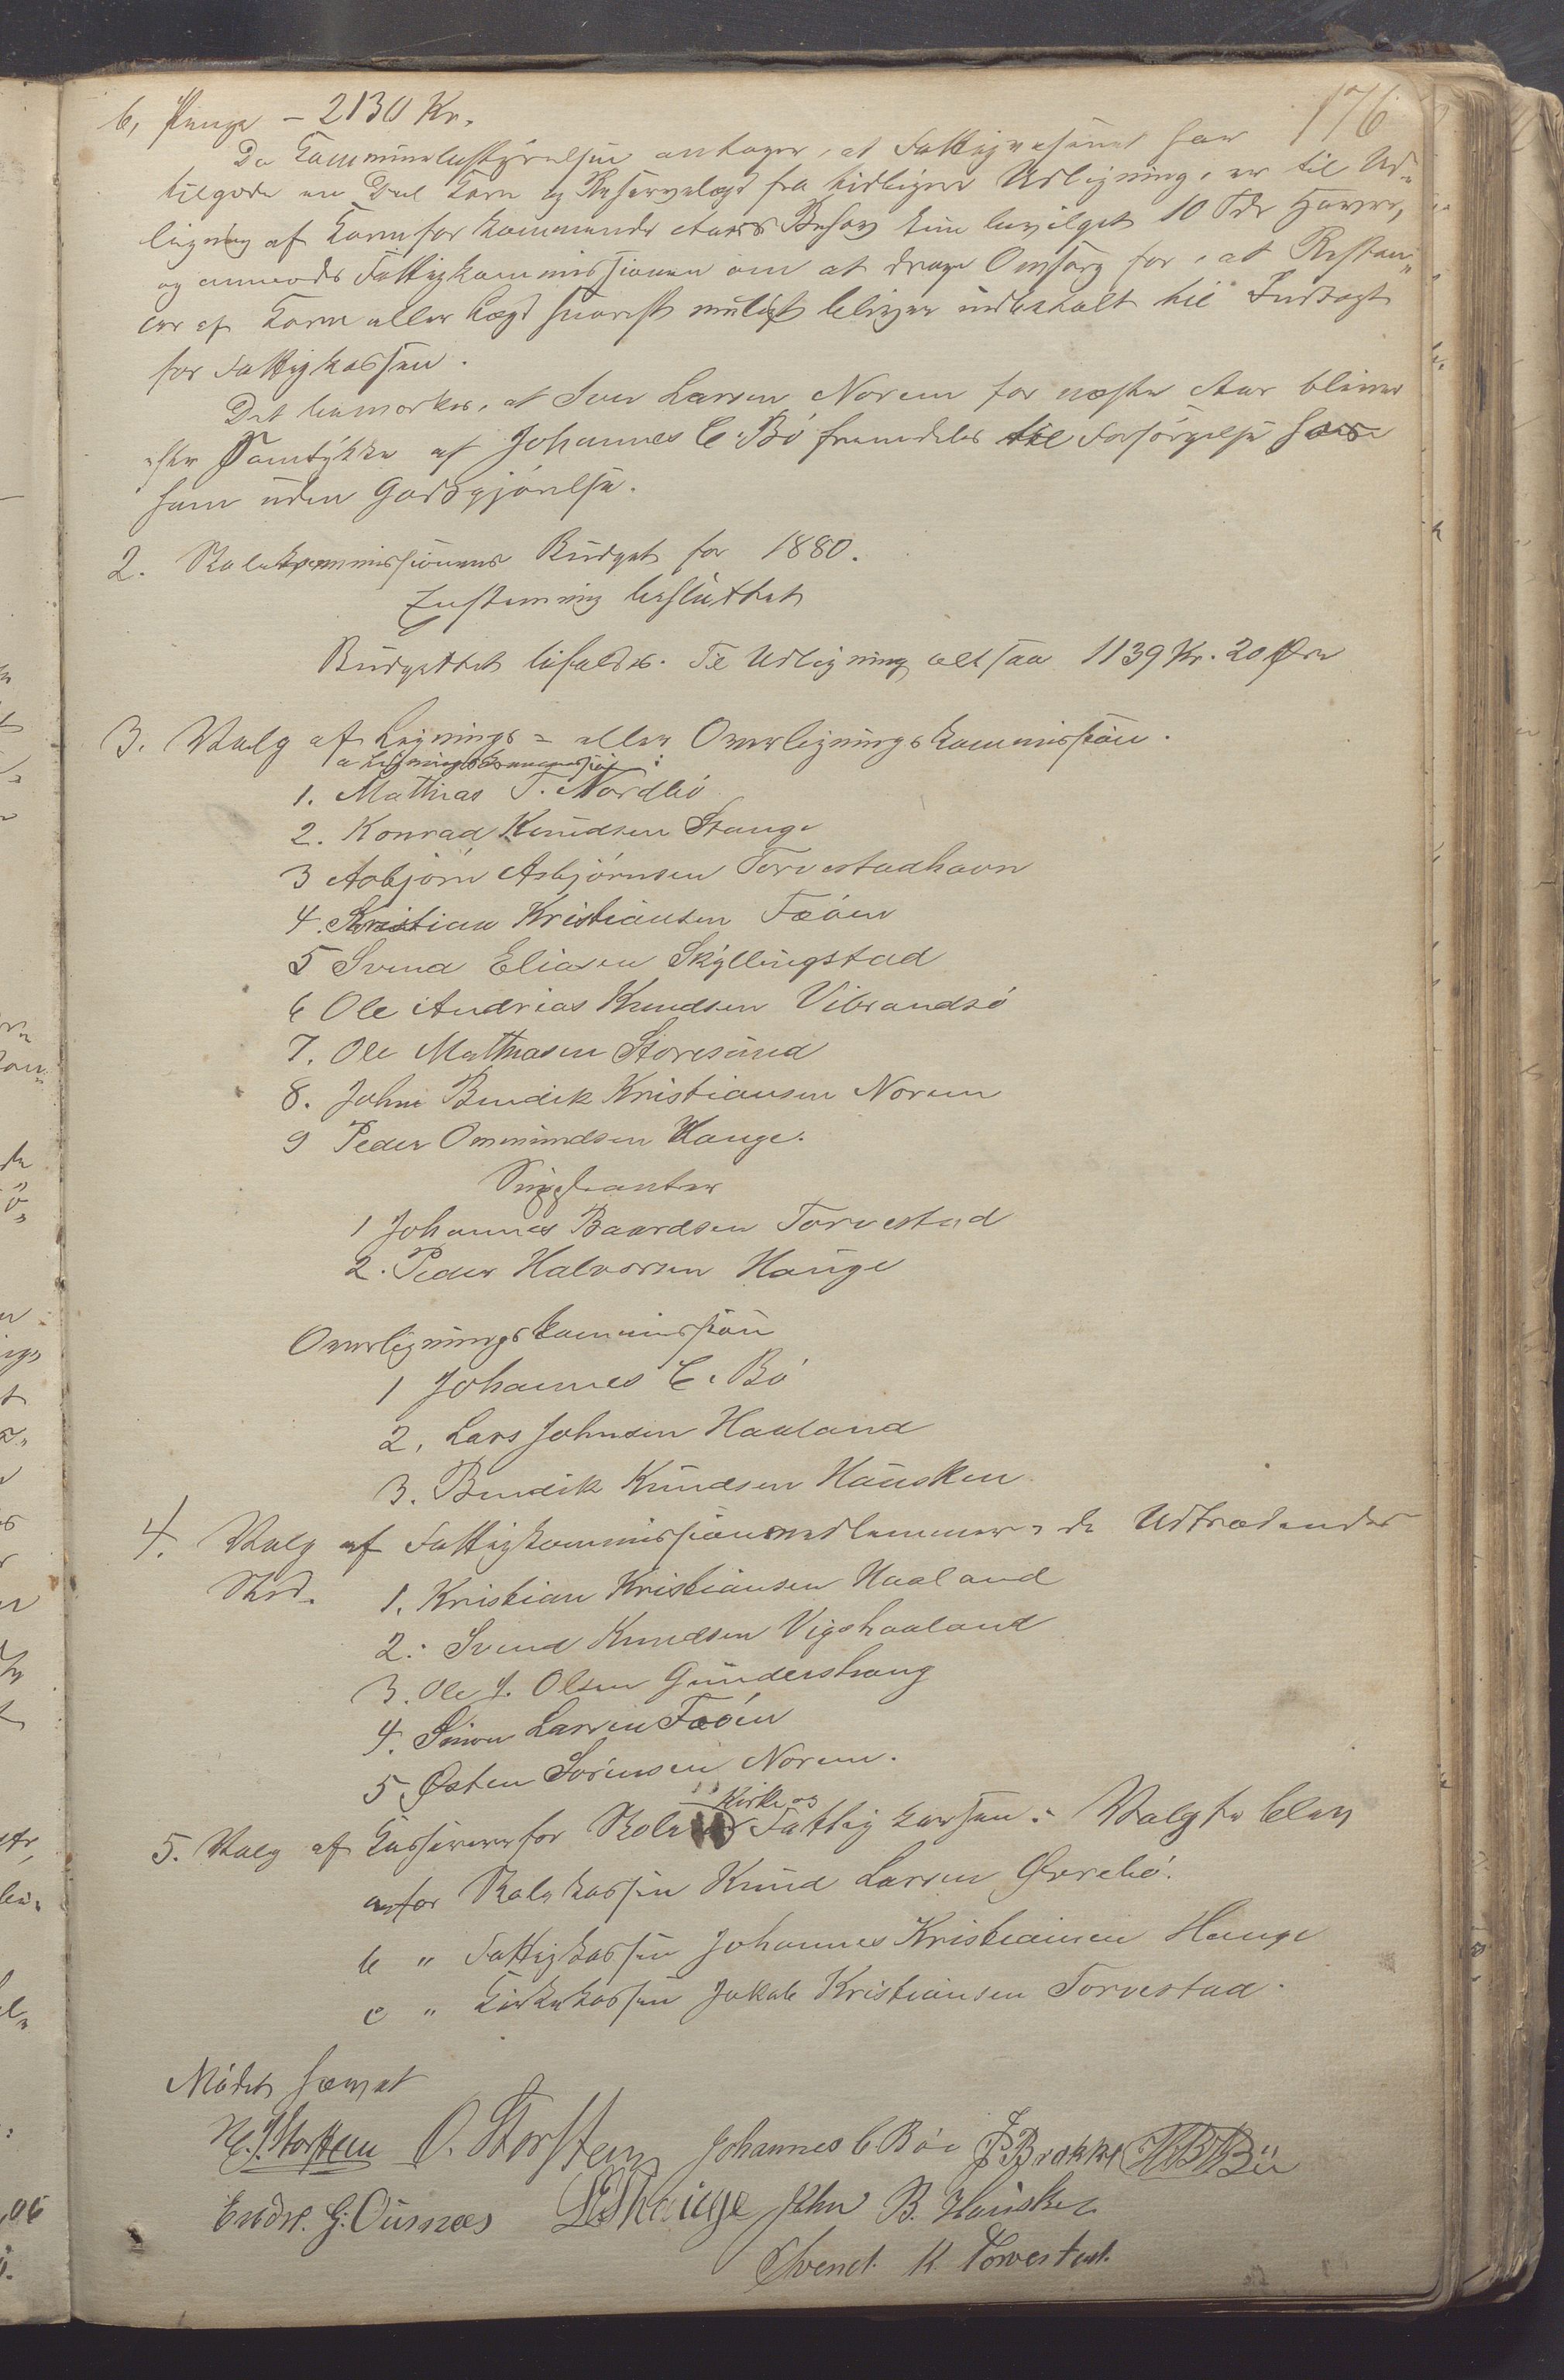 176
b, Penge – 2130 Kr.
Da Kommunebestyrelsen antager, at Fattigvæsenet har
tilgode en Deel Korn og Reservelægd fra tidligere Udligning, er til Ud-
ligning af Korn for kommende Aars Behov kun bevilget 10 Tdr Havre,
og anmodes Fattigkommissionen om at drage Omsorg for, at Restan-
cer af Korn eller Lægd snarest muligt bliver indbetalt til Indtægt
for Fattigkassen.
Det bemærkes, at Sven Larsen Norem for næste Aar bliver
efter Samtykke af Johannes C. Bö fremdeles til Forsörgelse hos
ham uden Godtgjörelse.
2. Skolekommissionens Budget for 1880.
Enstemmig besluttet
Budgettet bifaldes. Til Udligning altsaa 1139 Kr. 20 Øre
3. Valg af Lignings- eller Overligningskommission.
a Ligningskommission:
1. Mathias T. Nordbö
2. Konrad Knudsen Stange
3 Asbjörn Asbjörnsen Torvestadhavn
4. Kristian Kristiansen Fæöen
5 Svend Eliasen Skyllingstad
6 Ole Andrias Knudsen Vibrandsö
7. Ole Mathiasen Storesund
8. John Bendik Kristiansen Norem
9 Peder Ommundsen Hauge.
Suppleanter
1 Johannes Baardsen Torvestad
2. Peder Halvorsen Hauge
Overligningskommission
1 Johannes C. Bö
2, Lars Johnsen Haaland
3. Bendik Knudsen Hausken
4. Valg af Fattigkommissionsmedlemmer i de Udtrædendes
Sted. 1. Kristian Kristiansen Haaland
2: Svend Knudsen Vigshaaland
3. Ole J. Olsen Gundershaug
4. Simon Larsen Fæöen
5 Østen Sörensen Norem.
Kirke og
5. Valg af Kasserere for Skole Fattigkassen: Valgte blev
a for Skolekassen Knud Larsen Osnebö.
b " Fattigkassen Johannes Kristiansen Hauge
c " Kirkekassen Jakob Kristiansen Torvestad.
Mödet hævet
Storstein O. Storstein Johannes C Böe Brække
Endre. G. Ousnæs Hauge John B. Hausken
Svend. K. Torvestad.